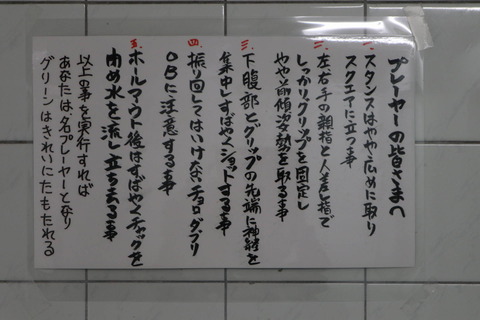 プレーヤーの皆さまへ
一、スタンスはやや広めに取り
スクエアに立つ事
二、左右手の親指と人差し指で
しっかりグリップを固定し
やや前傾姿勢を取る事
三、下腹部とグリップの先端に神経を
集中しすばやくショットする事
四、振り回してはいけないチョロダフリ
OBに注意する事
五、ホールアウト後はすばやくチャックを
由め水を流し立ち去る事
以上の事を実行すれば
あなたは名プレーヤーとなり
グリーンはきれいにたもたれる